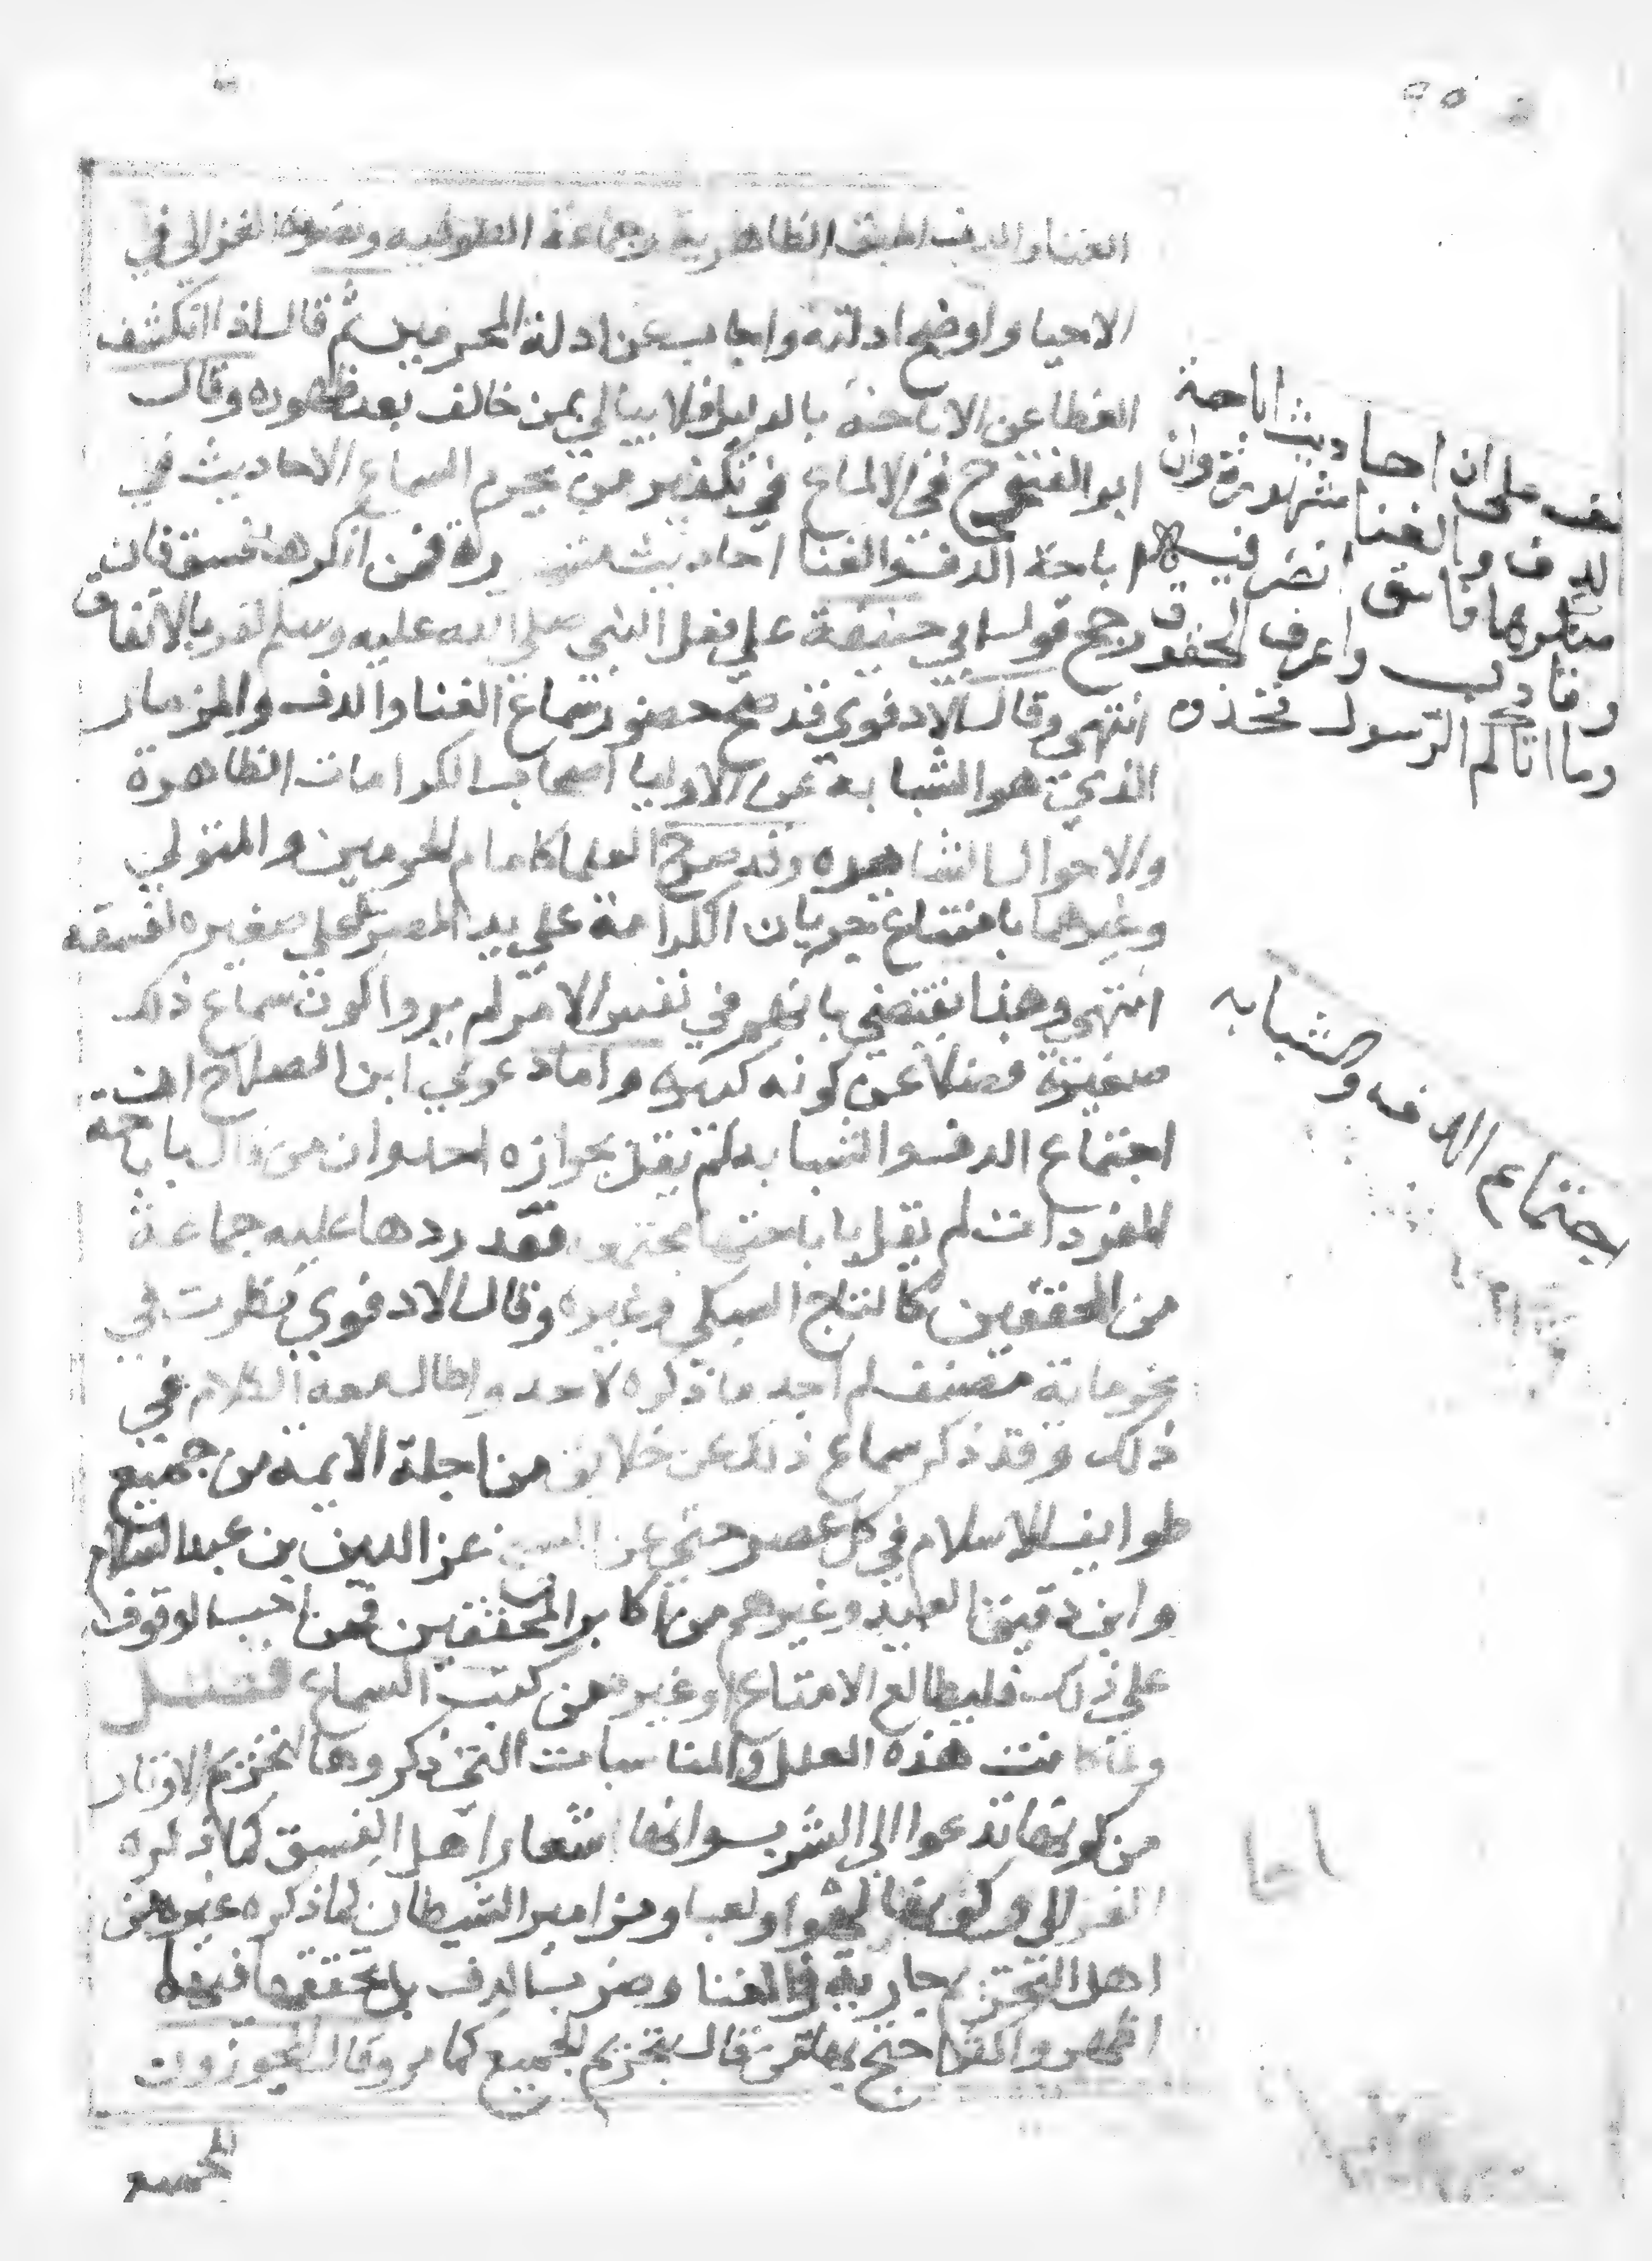 الغنا والدف اطبق الظاهرية وجماعة الصوفيه ونصره الغزالي في
الاحيا واوضح ادلته واجاب عن ادلة المحرمين ثم قال اذا انكشف
الغطا عن الاباحة بالدليل فلا يبالي بمن خالف بعد ظهوره وقال
ابو الفتوح في الالماع في تكفير من يحرم السماع الاحاديث في
اباحة الدف والغنا احاديث مشهورة فمن انكرها فسق فان
رجح قول ابي حنيفة علي فعل النبي صلي الله عليه وسلم كفر بالاتفاق
انتهي وقال الادفوي قد صح حضور سماع الغنا والدف والمزمار
الذي هو الشبابة عن الاوليا اصحاب الكرامات الظاهرة
والاحوال الشاهده وقد صرح العلما كامام الحرمين والمتولي
وغيرهما بامتناع جريان الكرامة علي يد المصر علي صغيره لفسقه
انتهي وهذا يقتضي بانهم في نفس الامر لم يروا كون سماع ذلك
صغيرة فضلا عن كونه كبيره واما دعوي ابن الصلاح ان
اجتماع الدف والشبابه لم يقل بجوازه احد وان من قال باباحة
المفردات لم يقل باباحتها مجتمعه فقد ردها عليه جماعة
من المحققين كالتاج السبكي وغيره وقال الادفوي نظرت في
نحو ماية مصنف لم اجد ما ذكره لاحد واطال معه الكلام في
ذلك وقد ذكر سماع ذلك عن خلايق من اجلة الايمة من جميع
طوايف الاسلام في كل عصر حتي عن الشيخ عز الدين بن عبد السلام
وابن دقيق العيد وغيرهم من اكابر المحققين فمن احب الوقوف
علي ذلك فليطالع الامتاع وغيره من كتب السماع فصل
ولما كانت هذه العلل والمناسبات التي ذكروها لتحريم الاوتار
من كونها تدعوا الي الشرب وانها شعار اهل الفسق كما ذكره
الغزالي وكونها لهوا ولعبا ومزامير الشيطان كما ذكره غيره من
اهل التحريم جارية في الغنا وضرب الدف بل تحققها فيهما
اظهر واكثر احتج بها من قال بتحريم الجميع كما مر وقال المجوزون
الجميع
قف علي ان احاديث اباحة
الدف والغنا مشهورة وان
منكرها فاسق انظر فيه
وتادب واعرف الحقوق
وما اتاكم الرسول فخذوه
اجتماع الدف والشبابه